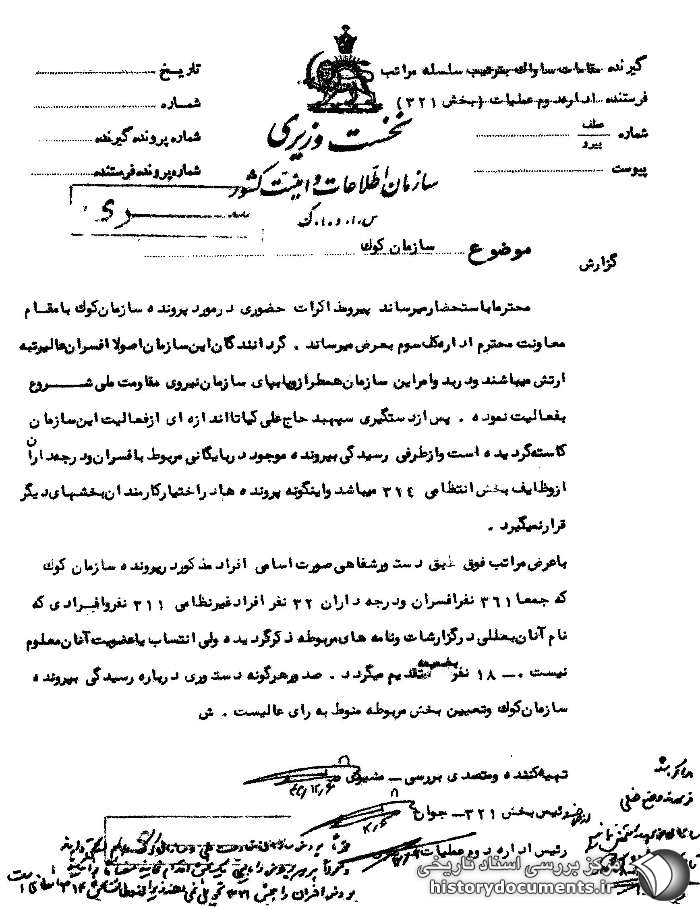 گیرنده مقامات ساواك بترتیب سلسله مراتب
فرستنده اداره دوم عملیات (بخش ۳۲۱)
شماره عطف پیرو
پیوست
تاریخ
شماره
شماره پرونده گیرنده
شماره پرونده فرستنده
نخست وزیری
سازمان اطلاعات و امنیت کشور
س.ا.و.ا.ک
سری
موضوع سازمان کوك
گزارش
محترما باستحضار میرساند پیرو مذاکرات حضوری در مورد پرونده سازمان کوك با مقام
معاونت محترم اداره کل سوم بعرض میرساند . گردانندگان این سازمان اصولا افسران عالیرتبه
ارتش میباشند و در بدو امر این سازمان همطراز و پابپای سازمان نیروی مقاومت ملی شــروع
بفعالیت نموده . پس از دستگیری سپهبد حاج علی کیا تا اندازه ای از فعالیت این سازمان
کاسته گردیده است و از طرفی رسیدگی بپرونده موجود در بایگانی مربوط با فسران و درجه داران
از وظایف بخش انتظامی ۳۲۴ میباشد و اینگونه پرونده ها در اختیار کارمندان بخشهای دیگر
قرار نمیگیرد .
با عرض مراتب فوق طبق دستور شفاهی صورت اسامی افراد مذکور در پرونده سازمان کوك
که جمعا ۳۶۱ نفر افسران و درجه داران ۳۲ نفر افراد غیر نظامی ۳۱۱ نفر و افرادی که
نام آنان بعللی در گزارشات و نامه های مربوطه ذکر گردیده ولی انتساب یا عضویت آنان معلوم
نیست ۰ــ ۱۸ نفر بضمیمه تقدیم میگردد . صدور هرگونه دستوری درباره رسیدگی بپرونده
سازمان کوك و تعیین بخش مربوطه منوط به رای عالیست . ش
تهیه کننده و متصدی بررسی ــ
رئیس بخش ۳۲۱ــ جوان
رئیس اداره دوم عملیات
مرکز بررسی اسناد تاریخی
historydocuments.ir